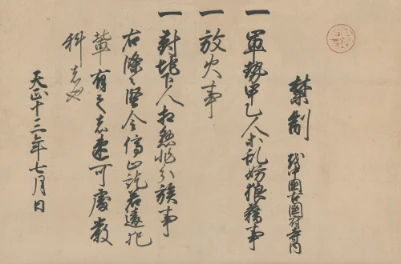 禁制 越中國
一 軍勢甲乙人等乱妨狼藉事
一 放火事
一 對地下人相懸非分族事
右條々堅令停止訖若違犯
輩有之者速可處嚴
科者也
天正十三年七月日